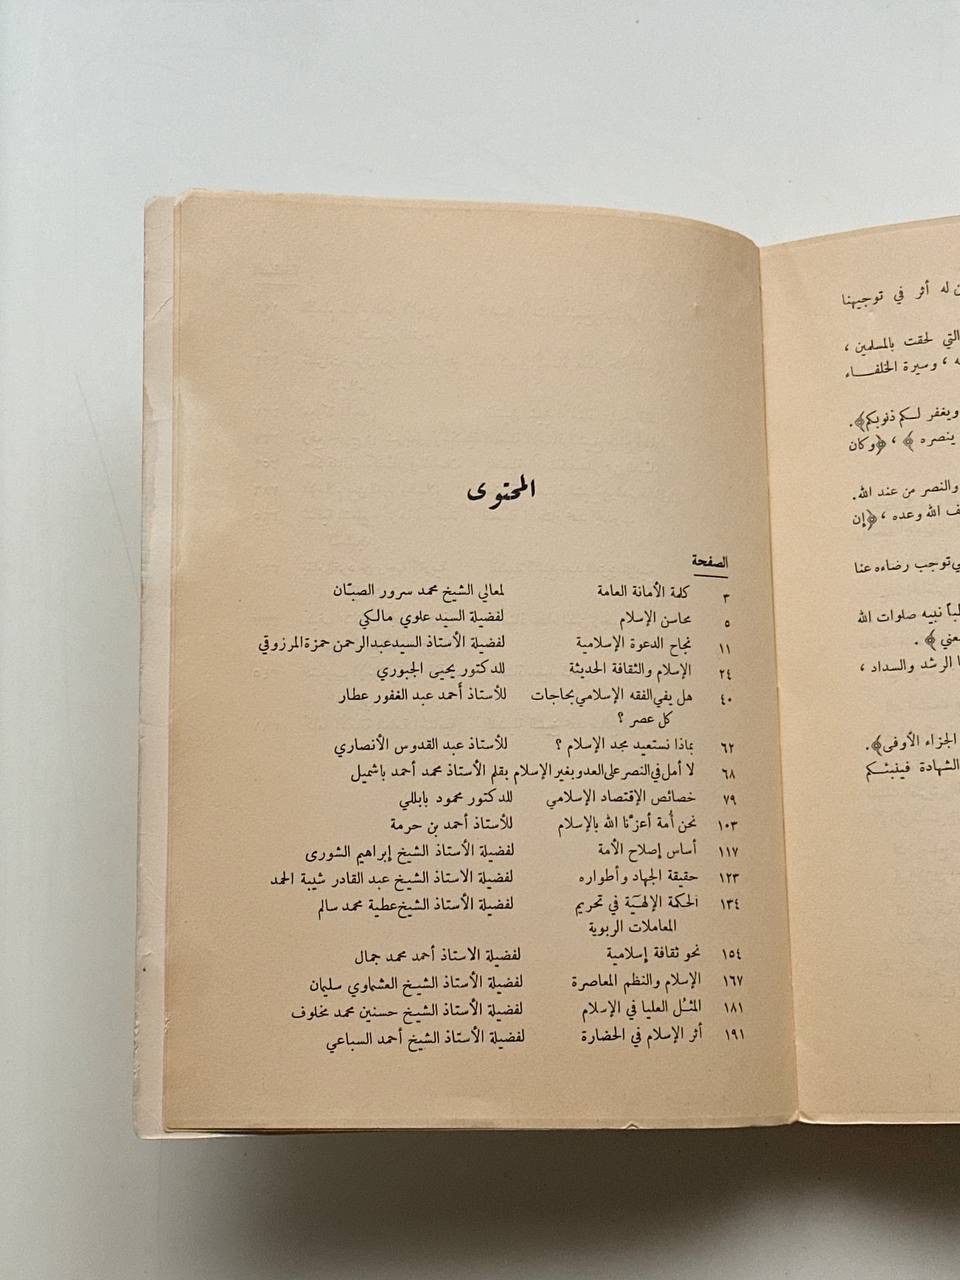 المحتوى
الصفحة
٣ كلمة الأمانة العامة لمعالي الشيخ محمد سرور الصبّان
٥ محاسن الإسلام لفضيلة السيد علوي مالكي
١١ نجاح الدعوة الإسلامية لفضيلة الأستاذ السيد عبد الرحمن حمزة المرزوقي
٢٤ الإسلام والثقافة الحديثة للدكتور يحيى الجبوري
٤٠ هل يفي الفقه الإسلامي بحاجات للأستاذ أحمد عبد الغفور عطار
كل عصر ؟
٦٢ بماذا نستعيد مجد الإسلام ؟ للأستاذ عبد القدوس الأنصاري
٦٨ لا أمل في النصر على العدو بغير الإسلام بقلم الأستاذ محمد أحمد باشميل
٧٩ خصائص الإقتصاد الإسلامي للدكتور محمود بابللي
١٠٣ نحن أمة أعزّنا الله بالإسلام للأستاذ أحمد بن حرمة
١١٧ أساس إصلاح الأمة لفضيلة الأستاذ الشيخ إبراهيم الشورى
١٢٣ حقيقة الجهاد وأطواره لفضيلة الاستاذ الشيخ عبد القادر شيبة الحمد
١٣٤ الحكمة الإلهية في تحريم لفضيلة الأستاذ الشيخ عطية محمد سالم
المعاملات الربوية
١٥٤ نحو ثقافة إسلامية لفضيلة الاستاذ أحمد محمد جمال
١٦٧ الإسلام والنظم المعاصرة لفضيلة الأستاذ الشيخ العشماوي سليمان
١٨١ المثل العليا في الإسلام لفضيلة الأستاذ الشيخ حسنين محمد مخلوف
١٩١ أثر الإسلام في الحضارة لفضيلة الأستاذ الشيخ أحمد السباعي
له أثر في توجيهنا
التي لحقت بالمسلمين ،
، وسيرة الخلفاء
ويغفر لكم ذنوبكم﴾.
ينصره ﴾ ، ﴿وكان
والنصر من عند الله.
الله وعده ، ﴿إن
توجب رضاءه عنا
نبيه صلوات الله
﴾ .
الرشد والسداد ،
الجزاء الأوفى﴾.
الشهادة فينبئكم